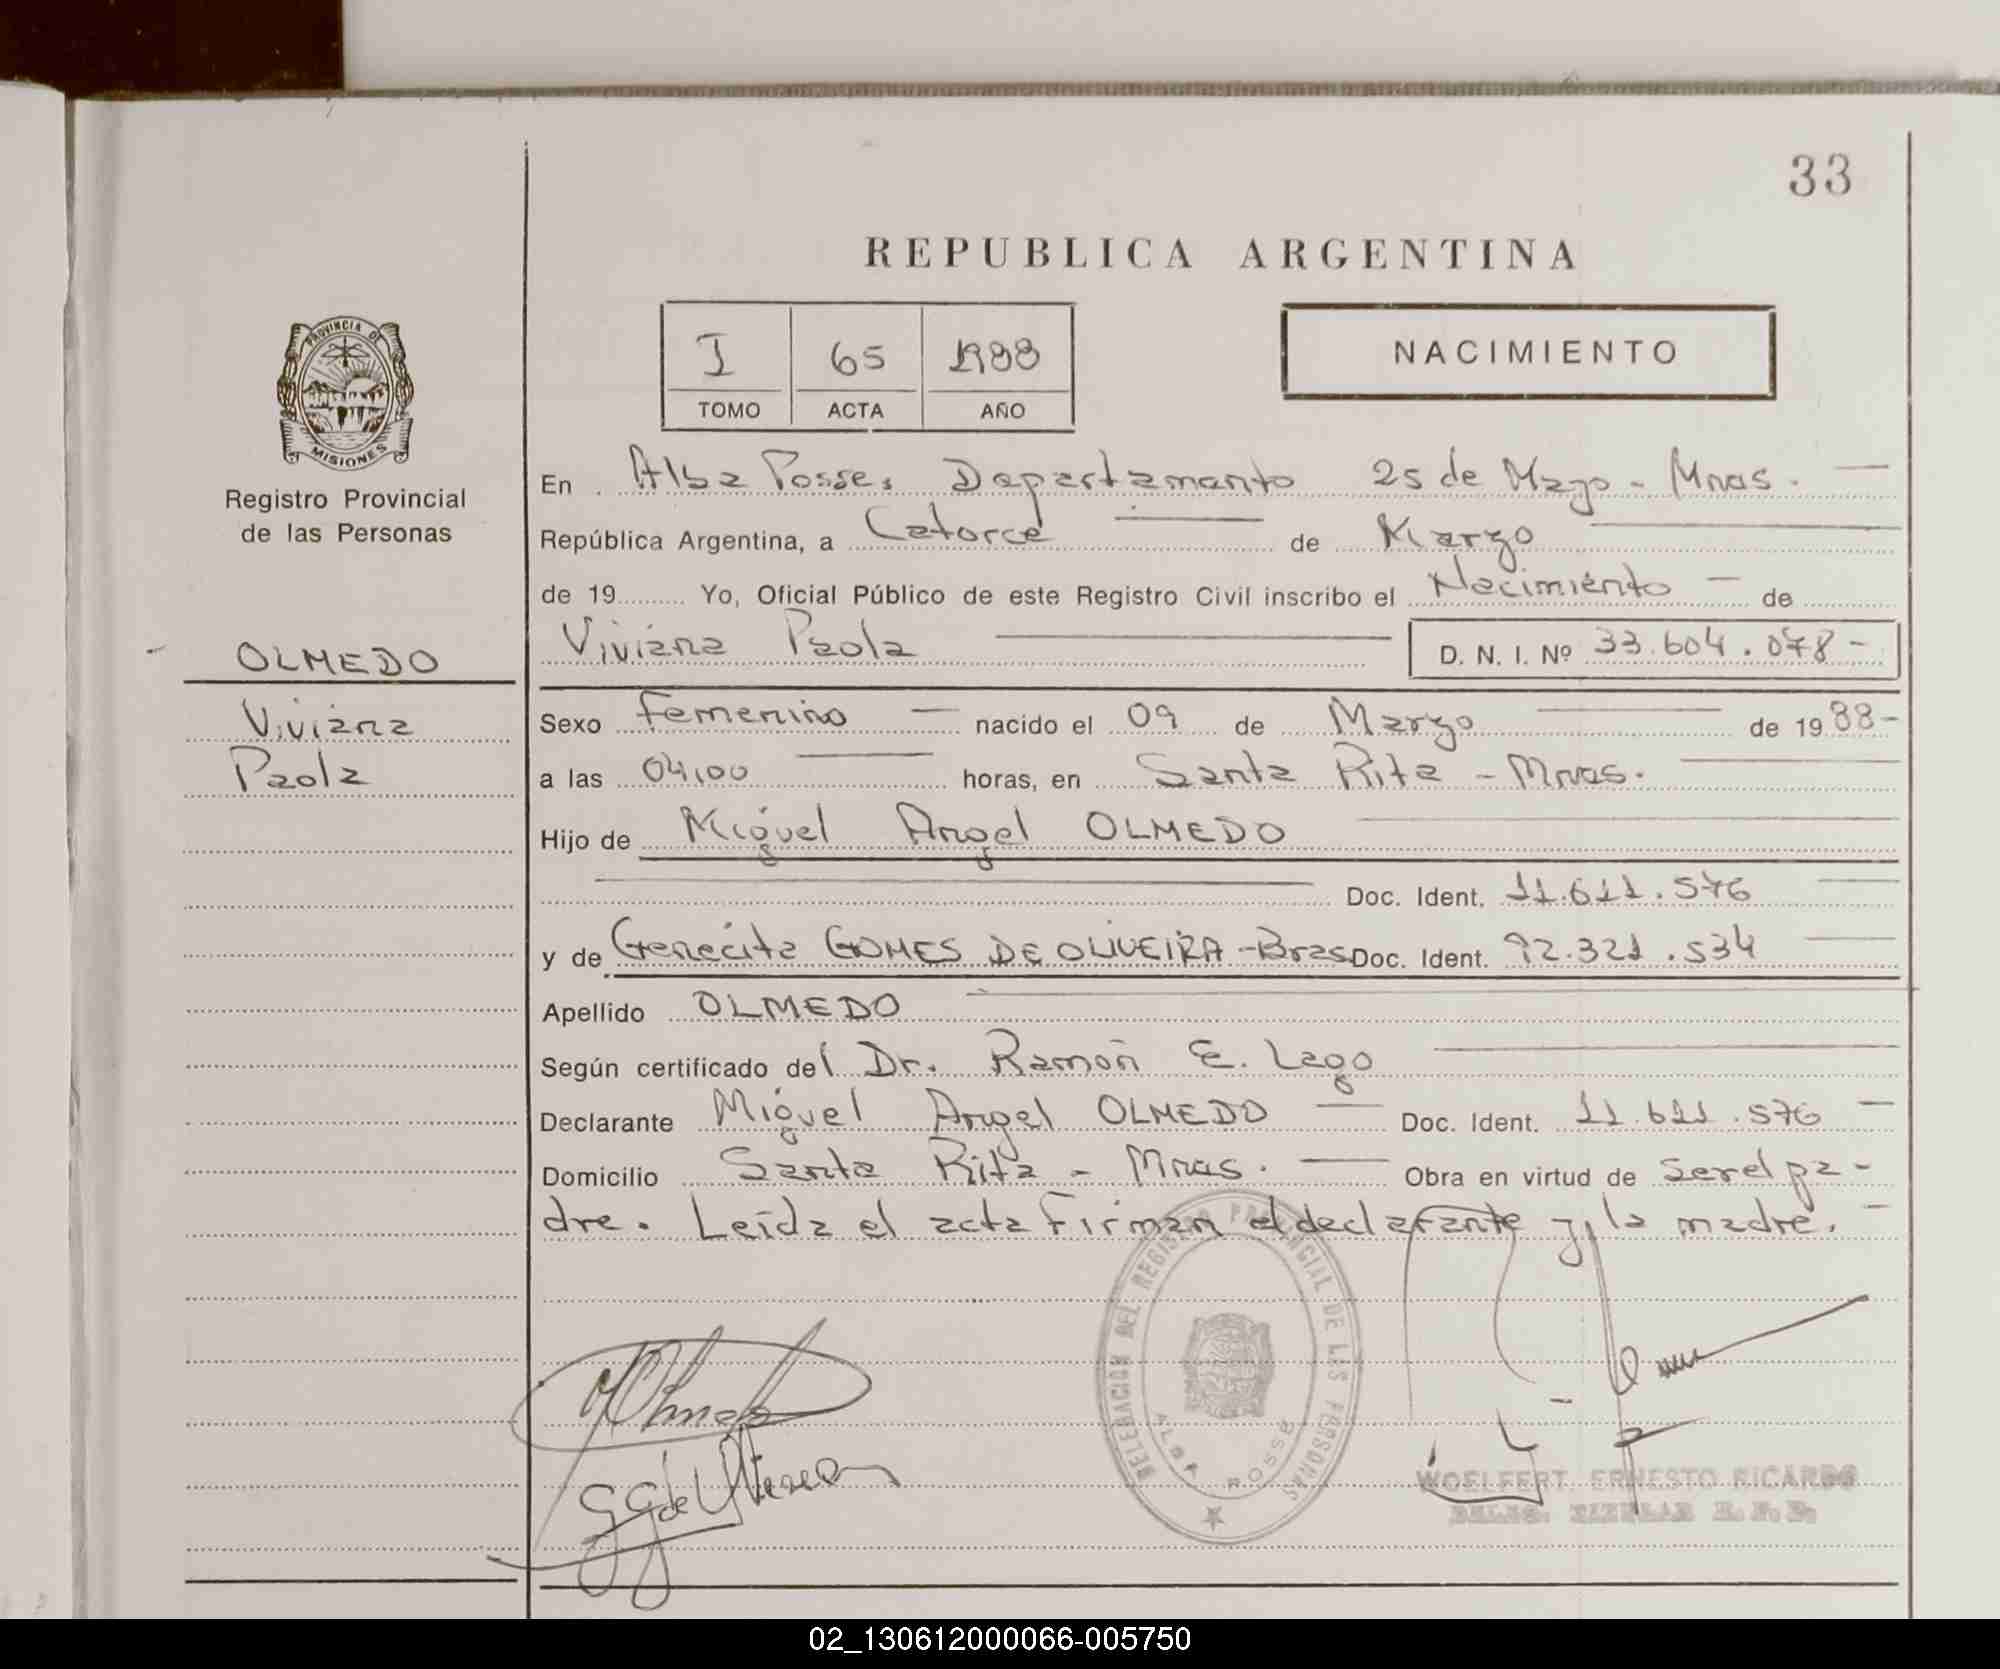 33
REPUBLICA ARGENTINA
I 65 1988
TOMO ACTA AÑO
NACIMIENTO
PROVINCIA DE
MISIONES
Registro Provincial
de las Personas
OLMEDO
Viviana
Paola
En Alba Posse, Departamento 25 de Mayo - Mnes.
República Argentina, a Catorce de Marzo
de 19 Yo, Oficial Público de este Registro Civil inscribo el Nacimiento de
Viviana Paola D. N. I. Nº 33.604.078-
Sexo Femenino nacido el 09 de Marzo de 1988-
a las 04,00 horas, en Santa Rita - Mnes.
Hijo de Miguel Angel OLMEDO
Doc. Ident. 11.611.576
y de Genecita GOMES DE OLIVEIRA -Bras Doc. Ident. 92.321.534
Apellido OLMEDO
Según certificado del Dr. Ramón E. Lago
Declarante Miguel Angel OLMEDO Doc. Ident. 11.611.576
Domicilio Santa Rita - Mnes. Obra en virtud de ser el pa-
dre. Leída el acta Firman el declarante y la madre.
DELEGACION DEL REGISTRO PROVINCIAL DE LAS PERSONAS
ALBA POSSE
WOELFERT ERNESTO RICARDO
DELEG. TITULAR R. P. P.
02_130612000066-005750